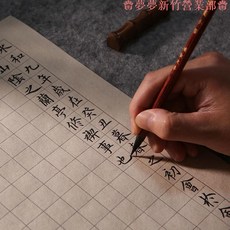 夢夢新竹營業部
永和九年歲在癸丑暮春之初會於會
山陰之蘭亭修禊事也